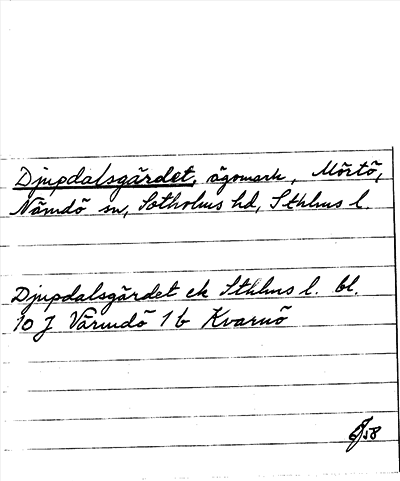 Djupdalsgärdet, ägomark, Mörtö,
Nämdö sn, Sotholms hd, Sthlms l.
Djupdalsgärdet ek Sthlms l. bl.
10 J Värmdö 1 b Kvarnö